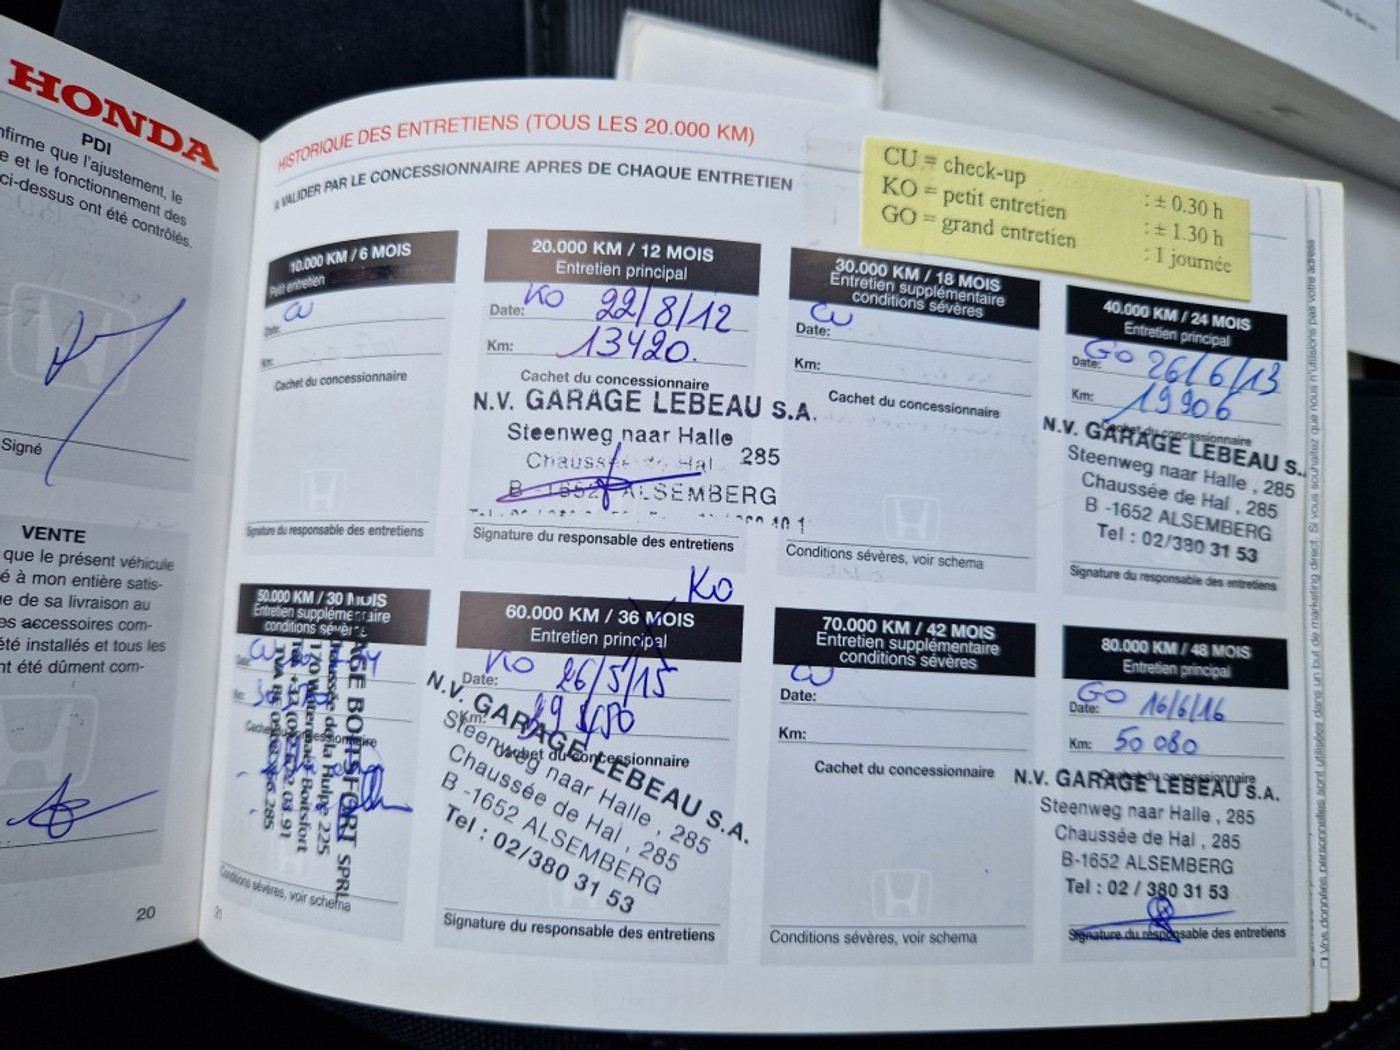 HONDA
PDI
nfirme que l'ajustement, le
e et le fonctionnement des
ci-dessus ont été contrôlés.
Signé
VENTE
que le présent véhicule
é à mon entière satis-
e de sa livraison au
es accessoires com-
été installés et tous les
nt été dûment com-
20
HISTORIQUE DES ENTRETIENS (TOUS LES 20.000 KM)
A VALIDER PAR LE CONCESSIONNAIRE APRES DE CHAQUE ENTRETIEN
CU = check-up : ± 0.30 h
KO = petit entretien : ± 1.30 h
GO = grand entretien : 1 journée
10.000 KM / 6 MOIS
Petit entretien
CU
Date:
Km:
Cachet du concessionnaire
Signature du responsable des entretiens
20.000 KM / 12 MOIS
Entretien principal
KO
Date: 22/8/12
Km: 13420.
Cachet du concessionnaire
N.V. GARAGE LEBEAU S.A.
Steenweg naar Halle
Chaussée de Hal 285
B -1652 ALSEMBERG
Signature du responsable des entretiens
30.000 KM / 18 MOIS
Entretien supplémentaire
conditions sévères
CU
Date:
Km:
Cachet du concessionnaire
Conditions sévères, voir schema
40.000 KM / 24 MOIS
Entretien principal
GO
Date: 26/6/13
Km: 19906
Cachet du concessionnaire
N.V. GARAGE LEBEAU S.
Steenweg naar Halle , 285
Chaussée de Hal , 285
B -1652 ALSEMBERG
Tel : 02/380 31 53
Signature du responsable des entretiens
50.000 KM / 30 MOIS
Entretien supplémentaire
conditions sévères
CU
Cachet du concessionnaire
AGE BOITSFORT SPRL
Chaussée de la Hulpe 225
1170 Watermael Boitsfort
Conditions sévères, voir schema
KO
60.000 KM / 36 MOIS
Entretien principal
KO
Date: 26/5/15
Km:
Cachet du concessionnaire
N.V. GARAGE LEBEAU S.A.
Steenweg naar Halle , 285
Chaussée de Hal , 285
B -1652 ALSEMBERG
Tel : 02/380 31 53
Signature du responsable des entretiens
70.000 KM / 42 MOIS
Entretien supplémentaire
conditions sévères
CU
Date:
Km:
Cachet du concessionnaire
Conditions sévères, voir schema
80.000 KM / 48 MOIS
Entretien principal
GO
Date: 16/6/16
Km: 50 080
Cachet du concessionnaire
N.V. GARAGE LEBEAU S.A.
Steenweg naar Halle , 285
Chaussée de Hal , 285
B-1652 ALSEMBERG
Tel : 02 / 380 31 53
Signature du responsable des entretiens
21
Vos données personnelles sont utilisées dans un but de marketing direct. Si vous souhaitez que nous n'utilisions pas votre adresse